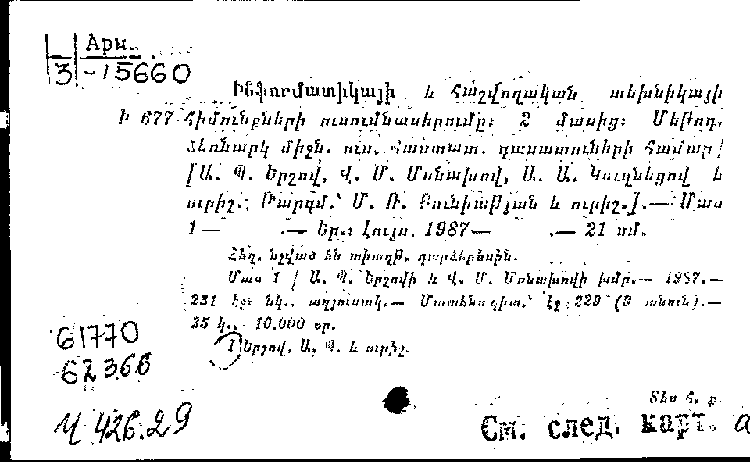 Арм.
3-15660
Ինֆորմատիկայի և հաշվողական տեխնիկայի
Ի 677 հիմունքների ուսումնասիրումը: 2 մասից: Մեթոդ.
ձեռնարկ միջն. ուս. հաստատ. դասատուների համար/
[Ա. Պ. Երշով, Վ. Մ. Մոնախով, Ա. Ա. Կուզնեցով և
ուրիշ.; Թարգմ.՝ Մ. Ռ. Բունիաթյան և ուրիշ.].— Մաս
1— .— Եր.: Լույս, 1987— .— 21 սմ.
Հեղ. նշված են տիտղթ. դարձերեսին.
Մաս 1 / Ա. Պ. Երշովի և Վ. Մ. Մոնախովի խմբ.— 1987.—
231 էջ: նկ., աղյուսակ.— Մատենագիտ.՝ էջ 229 (9 անուն).—
35 կ., 10.000 օր.
1 Երշով, Ա. Պ. և ուրիշ.
61770
62366
Ч 426.29
Տես հ. ք.
См. след. карт.